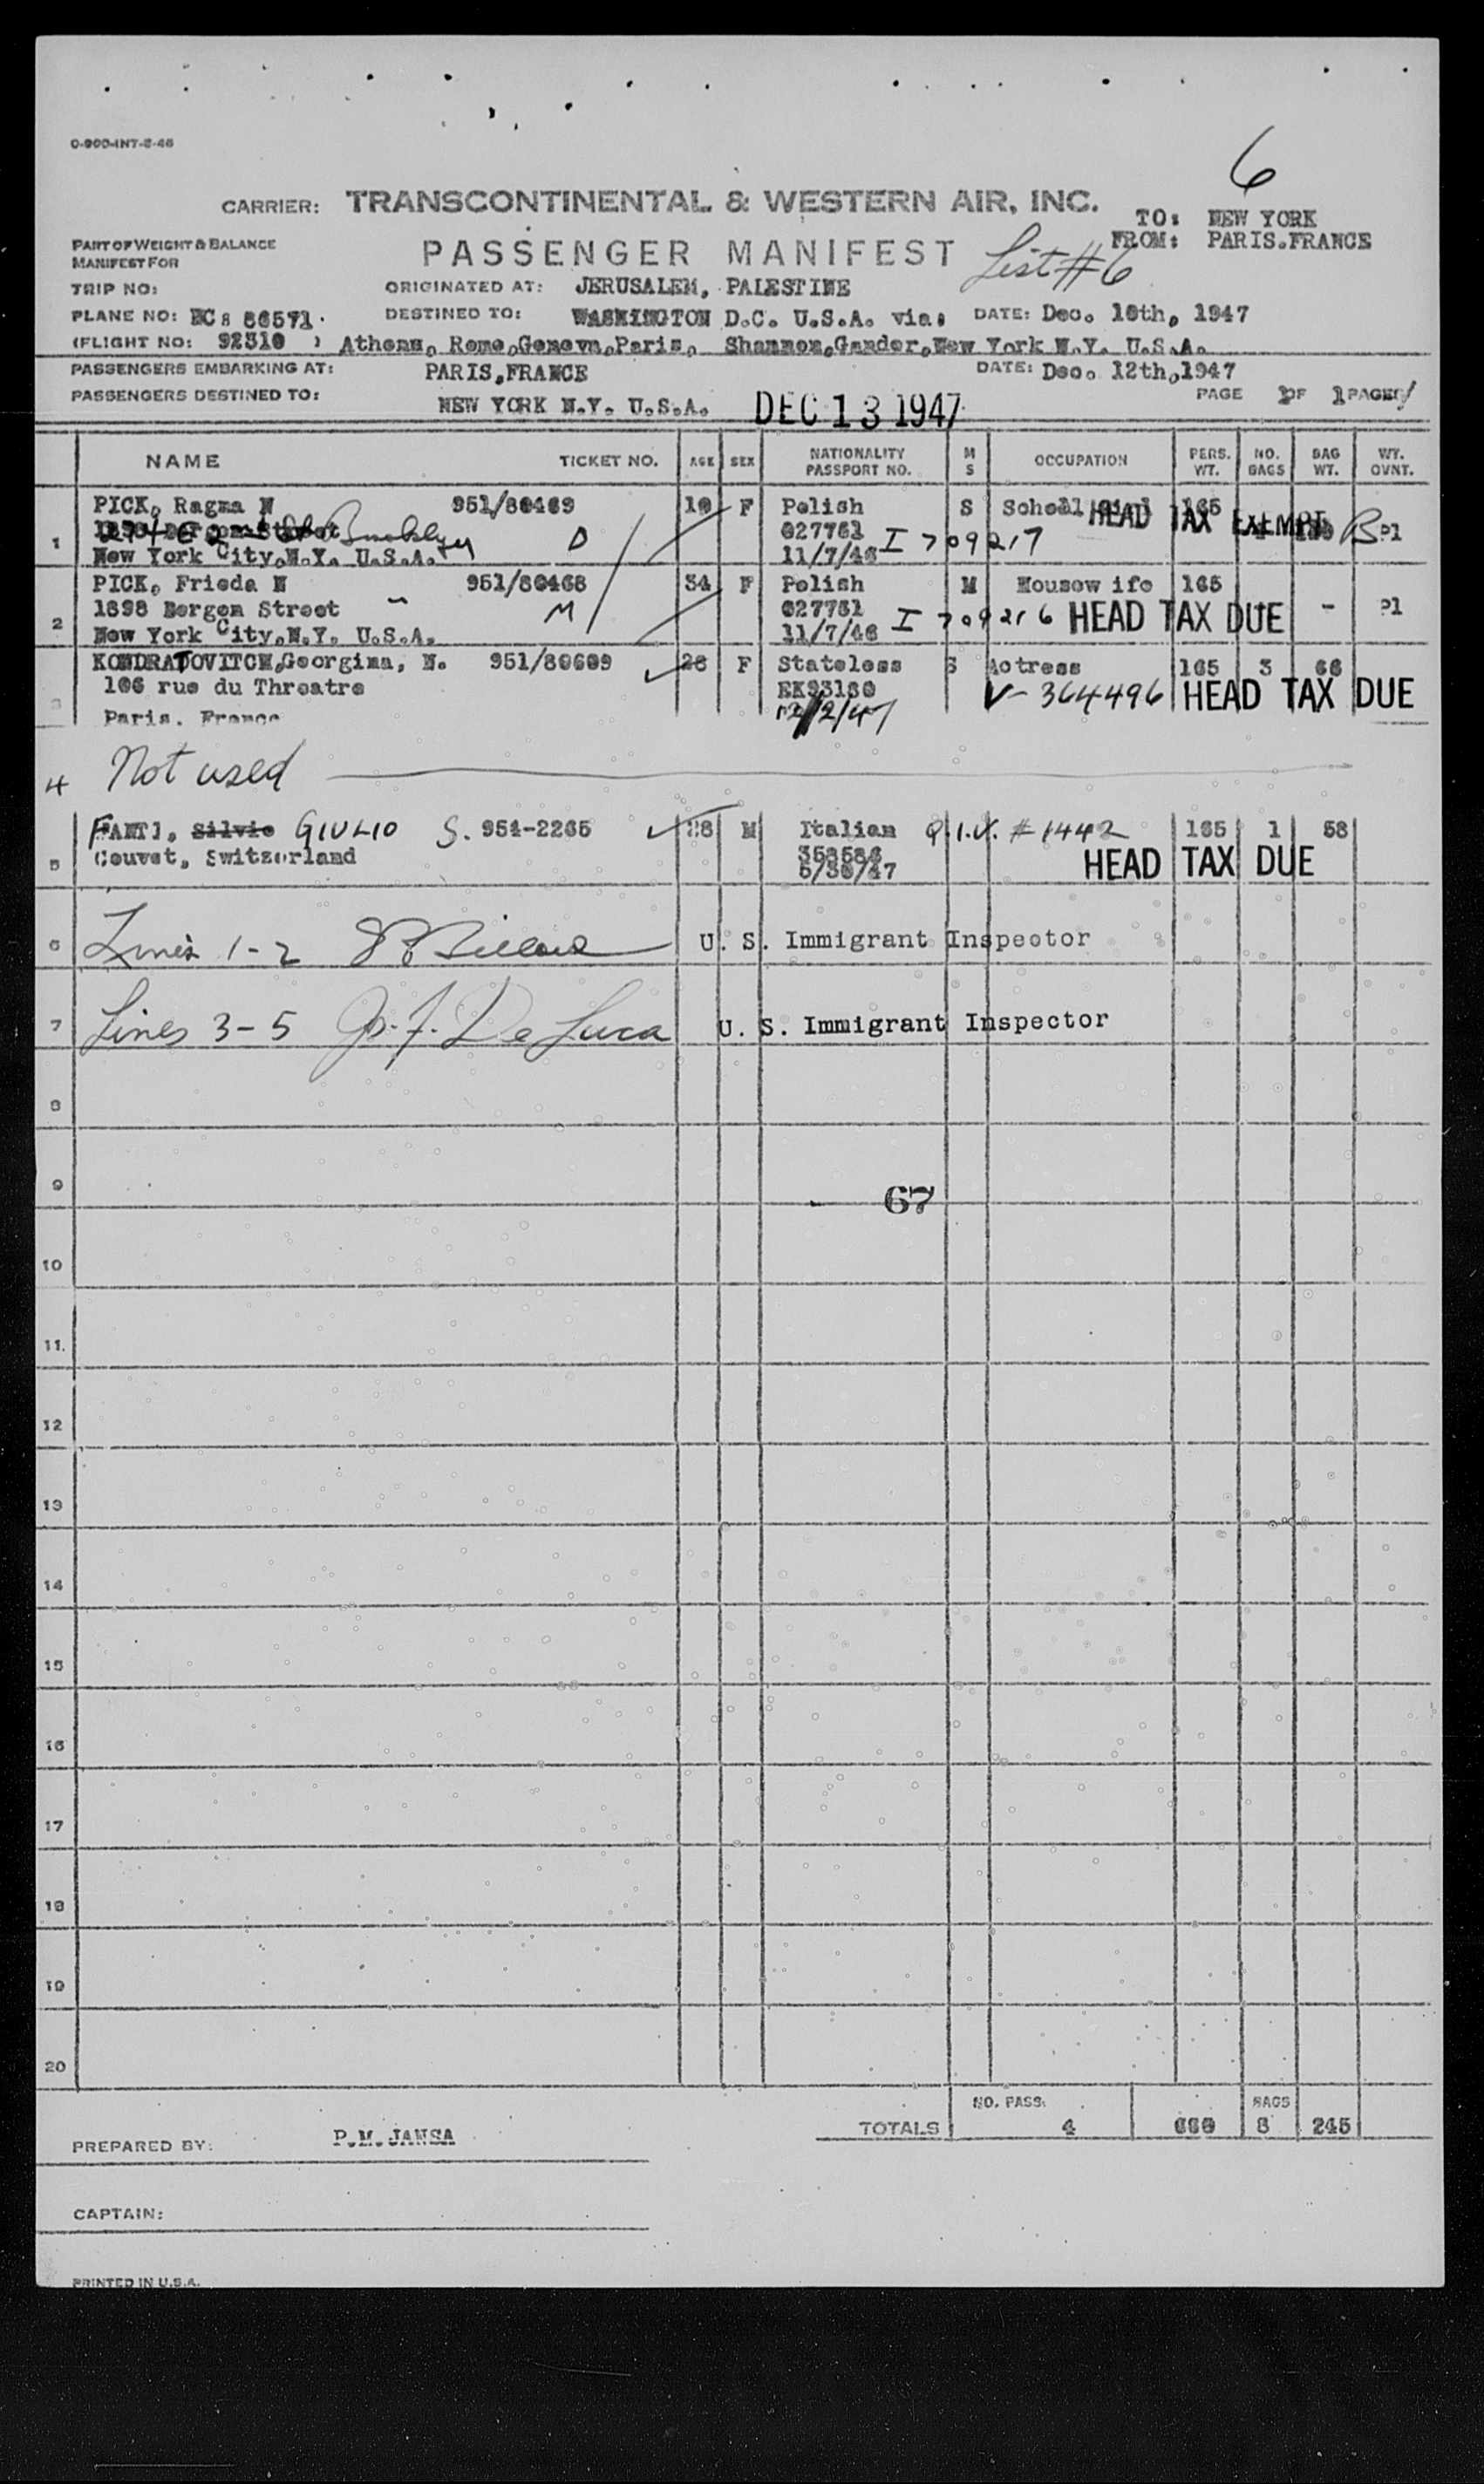 O-900-INT-2-46
6
CARRIER: TRANSCONTINENTAL & WESTERN AIR, INC.
TO: NEW YORK
PART OF WEIGHT & BALANCE
MANIFEST FOR
PASSENGER MANIFEST List #6
FROM: PARIS.FRANCE
TRIP NO:
ORIGINATED AT: JERUSALEM, PALESTINE
PLANE NO: NC: 86571
DESTINED TO: WASHINGTON D.C. U.S.A. via: DATE: Dec. 10th, 1947
(FLIGHT NO: 92310 ) Athens, Rome,Geneva,Paris, Shannon,Gander,New York N.Y. U.S.A.
PASSENGERS EMBARKING AT: PARIS,FRANCE DATE: Dec. 12th,1947
PASSENGERS DESTINED TO: NEW YORK N.Y. U.S.A. DEC 13 1947 PAGE OF 1 PAGE
NAME TICKET NO. AGE SEX NATIONALITY PASSPORT NO. M S OCCUPATION PERS. WT. NO. BAGS BAG WT. WT. OVNT.
1 PICK, Ragma N 951/80469 10 F Polish S School girl 165
Brooklyn D 027761 I 709217 HEAD TAX EXEMPT
New York City,N.Y. U.S.A. 11/7/46
2 PICK, Frieda N 951/80468 34 F Polish M Housew ife 165
1898 Bergen Street M 027761 I 709216 HEAD TAX DUE -
New York City,N.Y. U.S.A. 11/7/46
3 KONDRATOVITCH,Georgina, N. 951/80609 28 F Stateless S Actress 165 3 66
106 rue du Threatre EK93180 V-364496 HEAD TAX DUE
Paris. France 12/2/47
4 Not used
5 FANTI, Silvio GIULIO S. 954-2265 28 M Italian Q.I.V. #1442 165 1 58
Couvet, Switzerland 358586 HEAD TAX DUE
6/30/47
6 Lines 1-2 U. S. Immigrant Inspector
7 Lines 3-5 Jos. F. De Luca U. S. Immigrant Inspector
8
9
67
10
11.
12
13
14
15
16
17
18
19
20
NO. PASS: BAGS
TOTALS 4 660 8 245
PREPARED BY: P.M.JANSA
CAPTAIN:
PRINTED IN U.S.A.